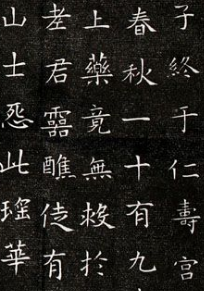 子終于仁壽宮
春秋一十有九
上藥竟無救於
老君靈醮徒有
山士怨此瑤華